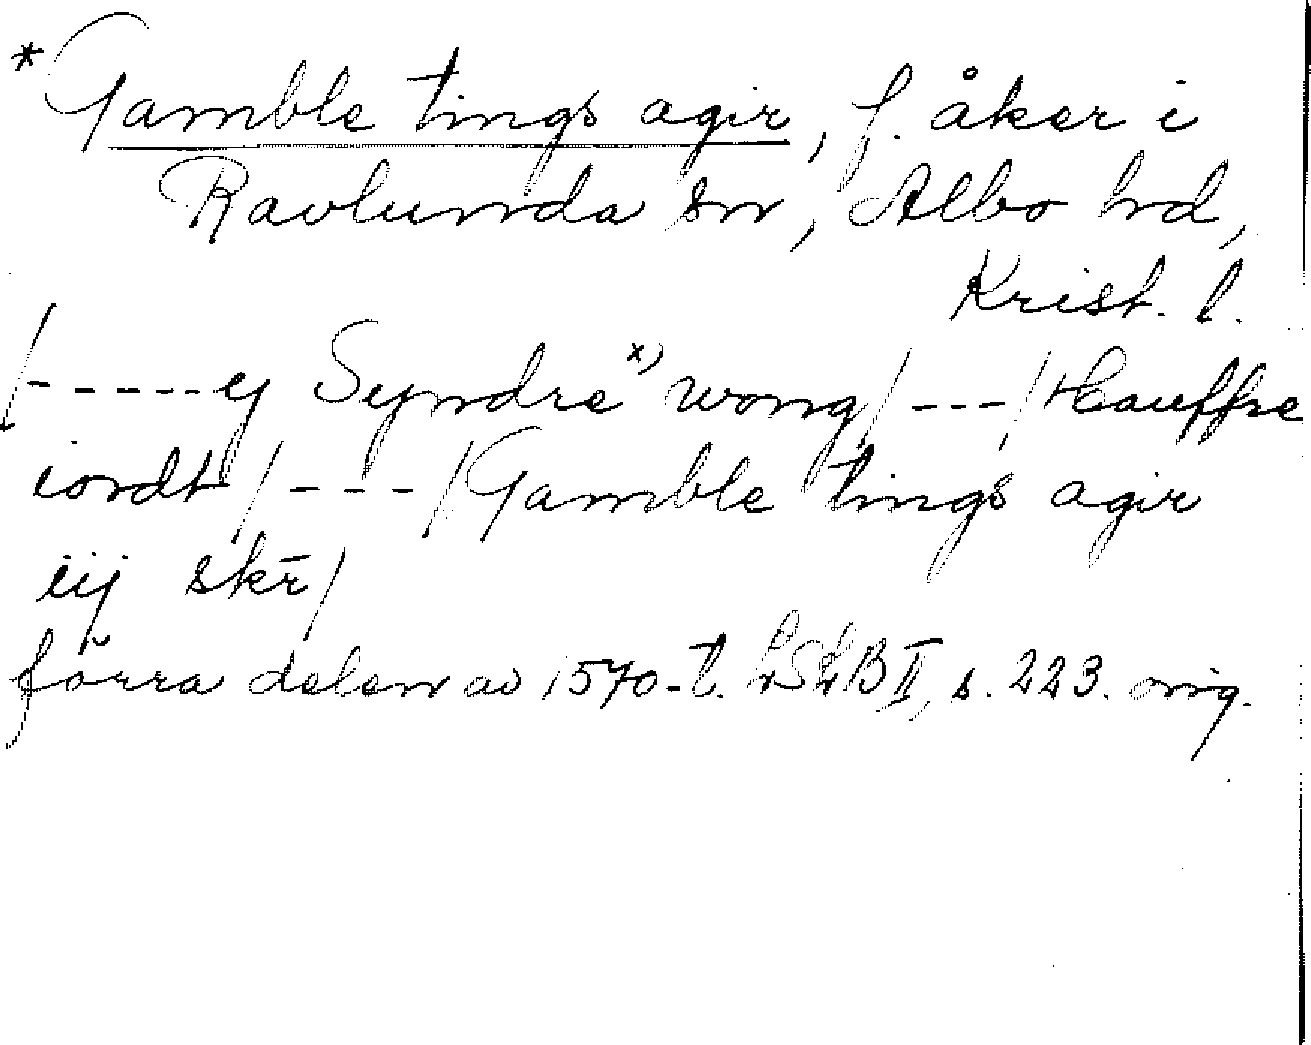 * Gamble tings agir, f. åker i
Ravlunda sn, Albo hd,
Krist. l.
/-----ej Syndre x) wong/---/Hauffre
iordt/---/Gamble tings agir
iij skr̄/
förra delen av 1570-t. LSLB II, s. 223. orig.